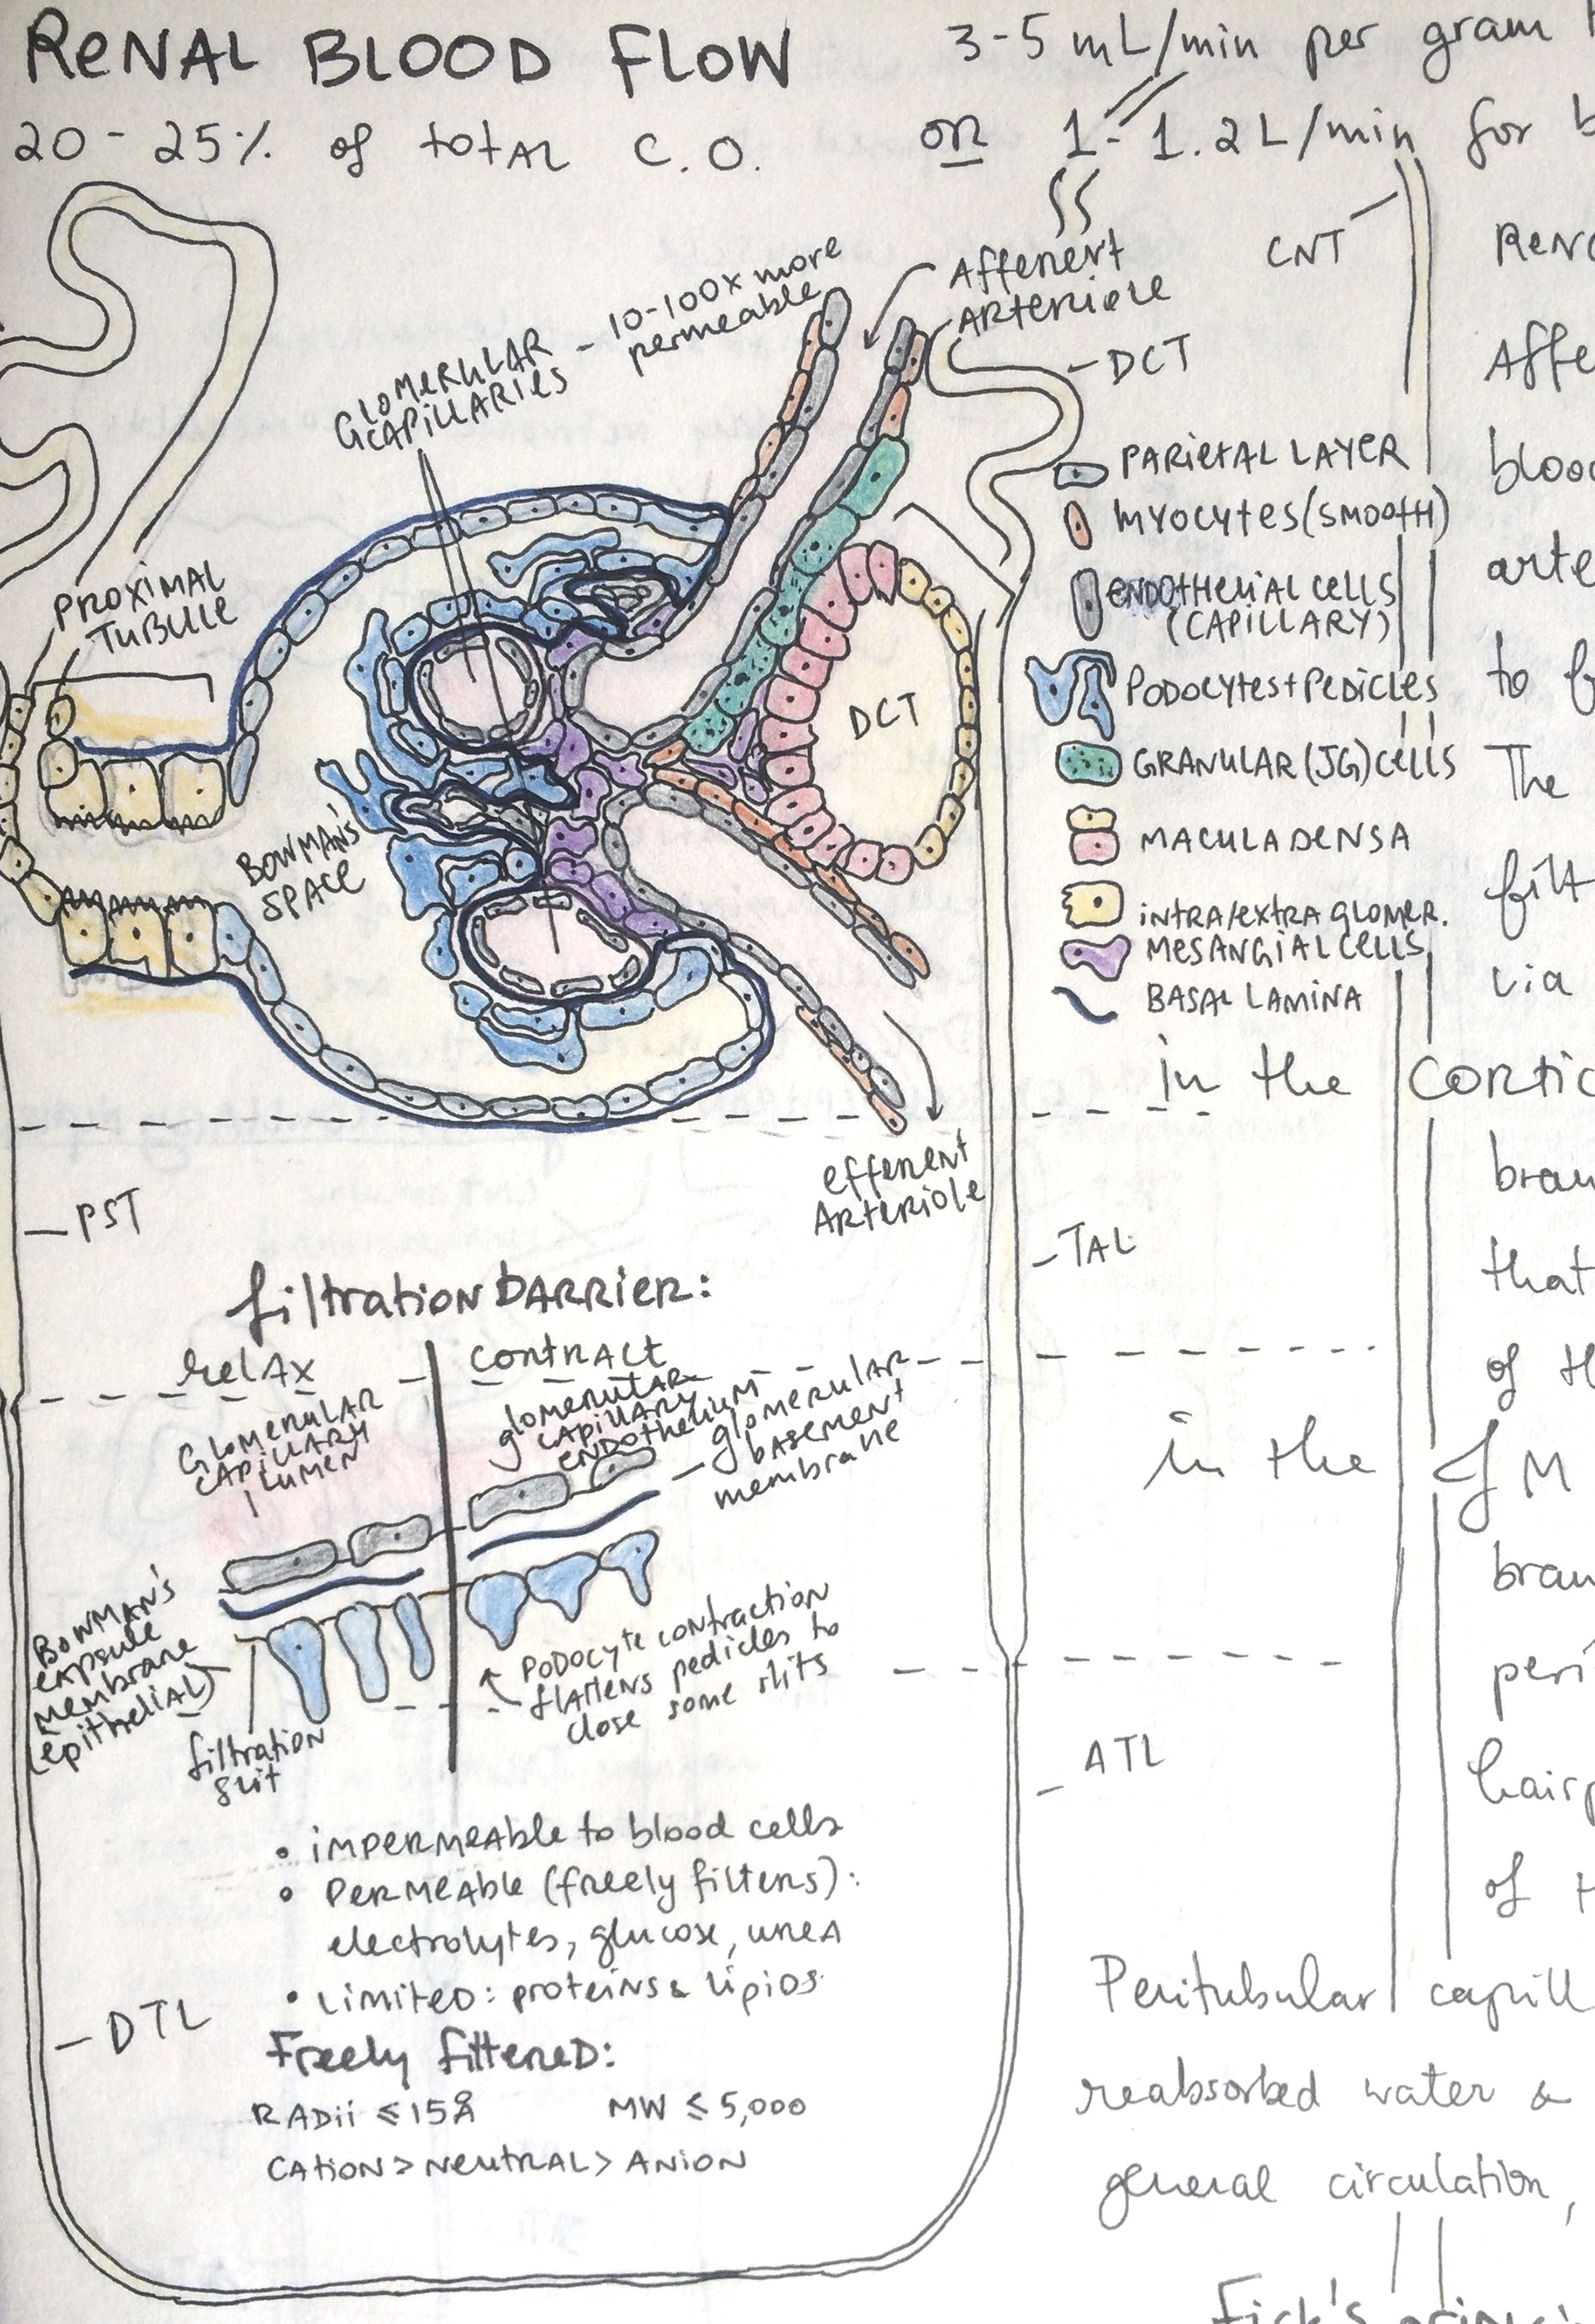 RENAL BLOOD FLOW
20-25% of total C.O.
3-5 mL/min per gram
or 1-1.2 L/min for
CNT
Afferent
Arteriole
GLOMERULAR
CAPILLARIES
- 10-100x more
permeable
- DCT
PROXIMAL
TUBULE
BOWMAN'S
SPACE
DCT
PARIETAL LAYER
MYOCYTES (SMOOTH)
ENDOTHELIAL CELLS
(CAPILLARY)
PODOCYTES + PEDICLES
GRANULAR (JG) CELLS
MACULA DENSA
INTRA/EXTRA GLOMER.
MESANGIAL CELLS
BASAL LAMINA
efferent
Arteriole
- PST
- TAL
filtration BARRIER:
relax
contract
Glomerular
capillary
lumen
glomerular
capillary
endothelium
- glomerular
basement
membrane
Bowman's
capsule
membrane
(epithelial)
filtration
slit
PODOCYTE contraction
flattens pedicles to
close some slits
• impermeable to blood cells
• Permeable (freely filters):
electrolytes, glucose, urea
• Limited: proteins & lipids
- DTL
Freely filtered:
RADii ≤ 15Å
MW ≤ 5,000
CATION > NEUTRAL > ANION
- ATL
Affe
blood
arte
to
The
filt
via
in the cortic
bran
that
of th
in the JM
bran
peri
hairp
of
Peritubular capill
reabsorbed water &
general circulation,
Fick's princi